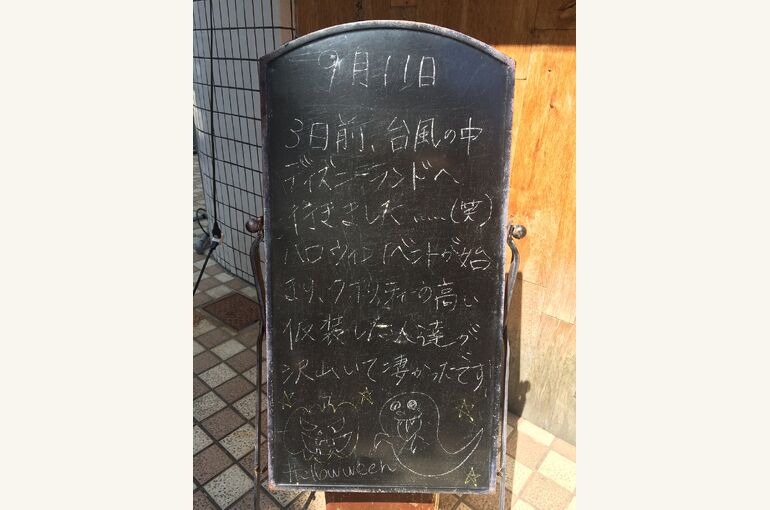 9月11日
3日前、台風の中
ディズニーランドへ
行きました……(笑)
ハロウィンイベントが始
まり、クオリティーの高い
仮装した人達が
沢山いて凄かったです!
Hallowween